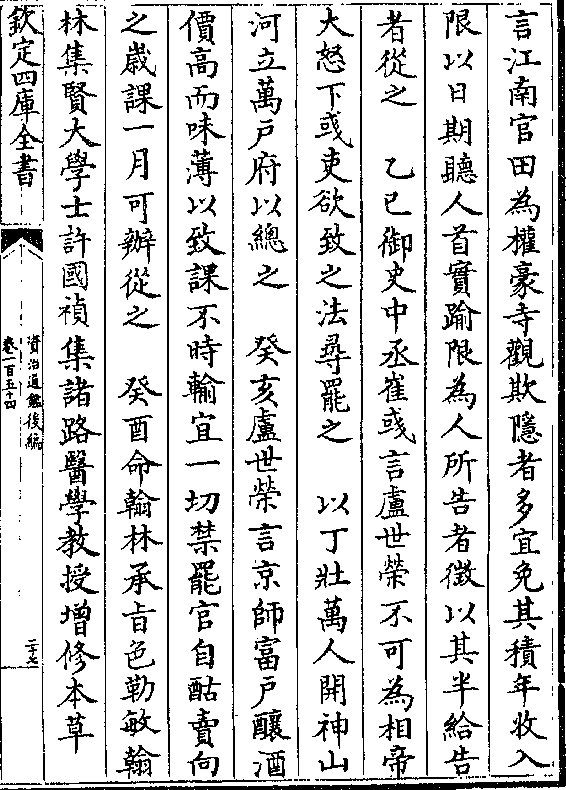 言江南官田為權豪寺觀欺隱者多宜免其積年收入
限以日期聽人首實踰限為人所告者徵以其半給告
者從之　乙巳御史中丞崔彧言盧世榮不可為相帝
大怒下彧吏欲致之法尋罷之　以丁壯萬人開神山
河立萬戸府以總之　癸亥盧世榮言京師富戸釀酒
價高而味薄以致課不時輸宜一切禁罷官自酤賣向
之歲課一月可辦從之　癸酉命翰林承㫖色勒敏翰
林集賢大學士許國禎集諸路醫學教授增修本草
欽定四庫全書
資治通鑑後編
卷一百五十四
二十七